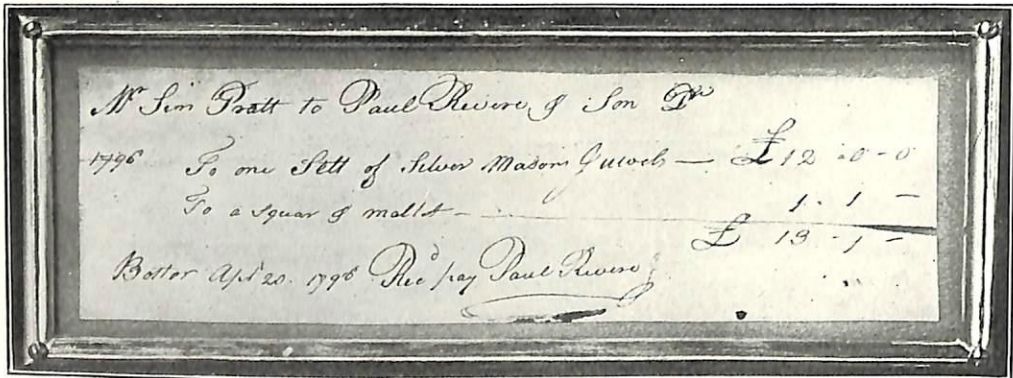 Mr Sim Pratt to Paul Revere & Son Dr
1796 To one Sett of Silver Masons Juwels — £12-0-0
To a squar & mallet — 1-1-
£13-1-
Boston Apl 20. 1796 Recd pay Paul Revere